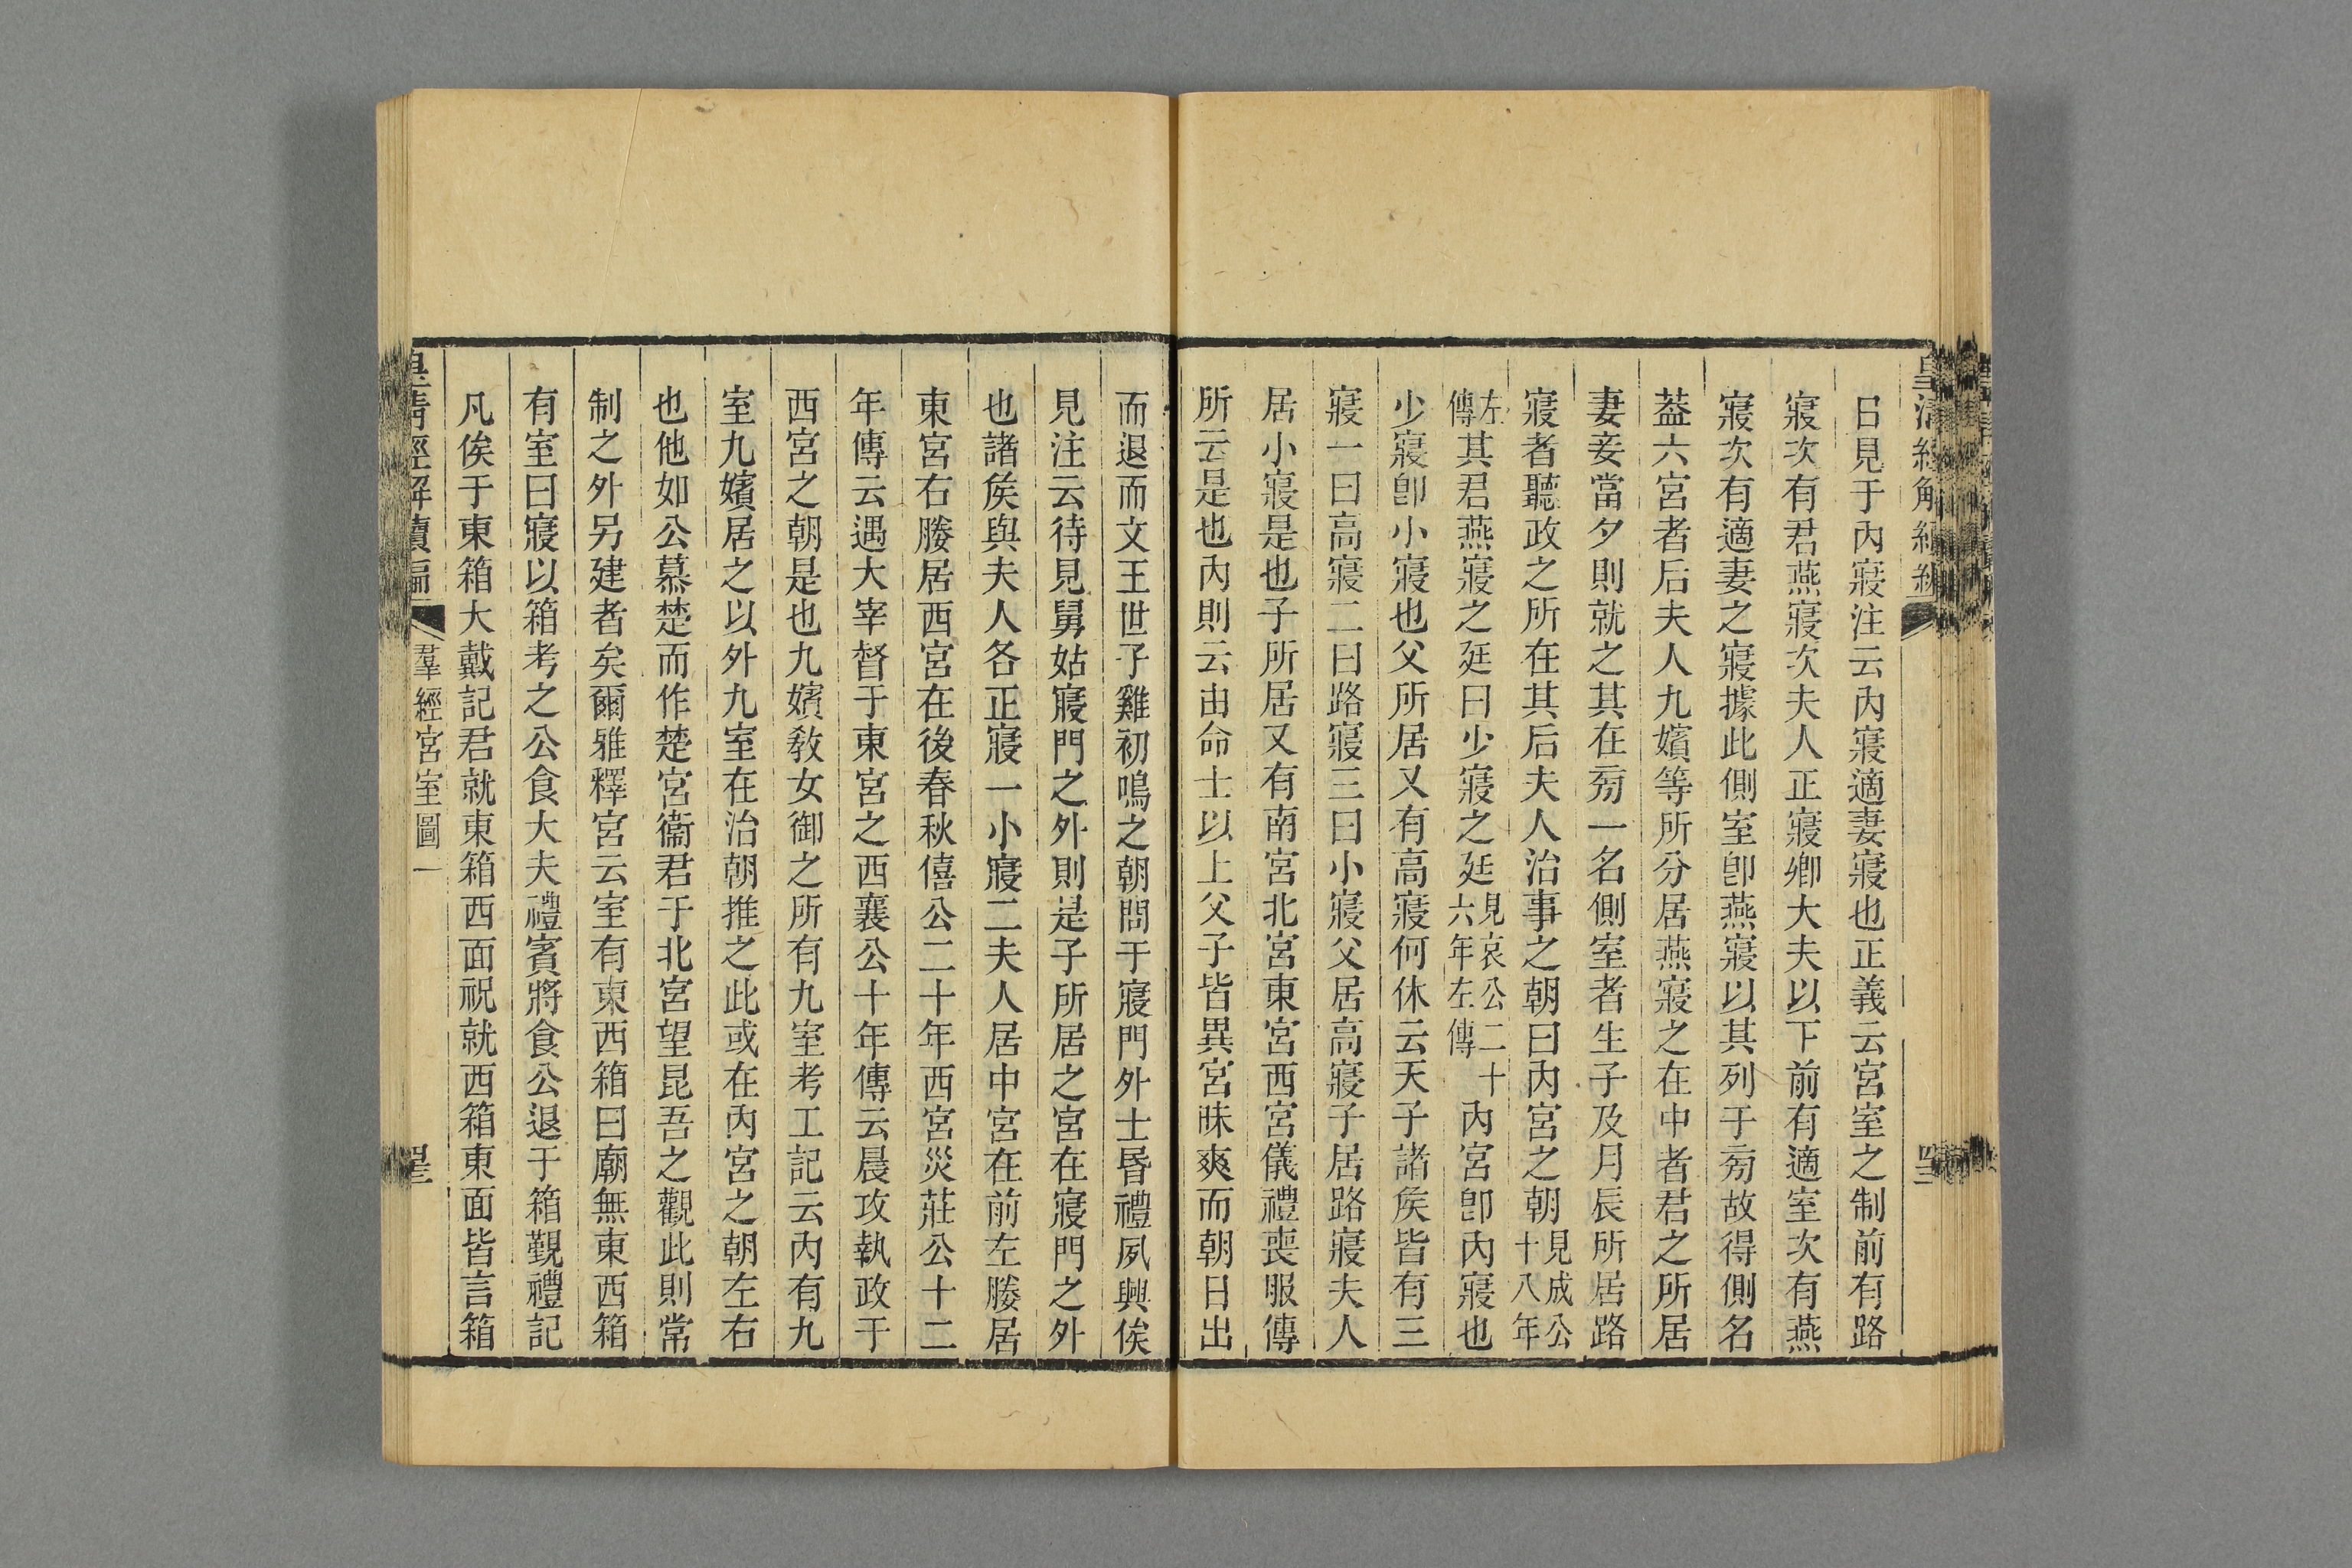 日見于內寢注云內寢適妻寢也正義云宮室之制前有路
寢次有君燕寢次夫人正寢卿大夫以下前有適室次有燕
寢次有適妻之寢據此側室卽燕寢以其列于㫄故得側名
葢六宮者后夫人九嬪等所分居燕寢之在中者君之所居
妻妾當夕則就之其在㫄一名側室者生子及月辰所居路
寢者聽政之所在其后夫人治事之朝曰內宮之朝見成公十八年
左傳其君燕寢之廷曰少寢之廷見哀公二十六年左傳內宮卽內寢也
少寢卽小寢也父所居又有高寢何休云天子諸矦皆有三
寢一曰高寢二曰路寢三曰小寢父居高寢子居路寢夫人
居小寢是也子所居又有南宮北宮東宮西宮儀禮喪服傳
所云是也內則云由命士以上父子皆異宮昧爽而朝日出
而退而文王世子雞初鳴之朝問于寢門外士昏禮夙興俟
見注云待見舅姑寢門之外則是子所居之宮在寢門之外
也諸矦與夫人各正寢一小寢二夫人居中宮在前左媵居
東宮右媵居西宮在後春秋僖公二十年西宮災莊公十二
年傳云遇大宰督于東宮之西襄公十年傳云晨攻執政于
西宮之朝是也九嬪敎女御之所有九室考工記云內有九
室九嬪居之以外九室在治朝推之此或在內宮之朝左右
也他如公慕楚而作楚宮衞君于北宮望昆吾之觀此則常
制之外另建者矣爾雅釋宮云室有東西箱曰廟無東西箱
有室曰寢以箱考之公食大夫禮賓將食公退于箱覲禮記
凡俟于東箱大戴記君就東箱西面祝就西箱東面皆言箱
皇淸經解續編
羣經宮室圖一